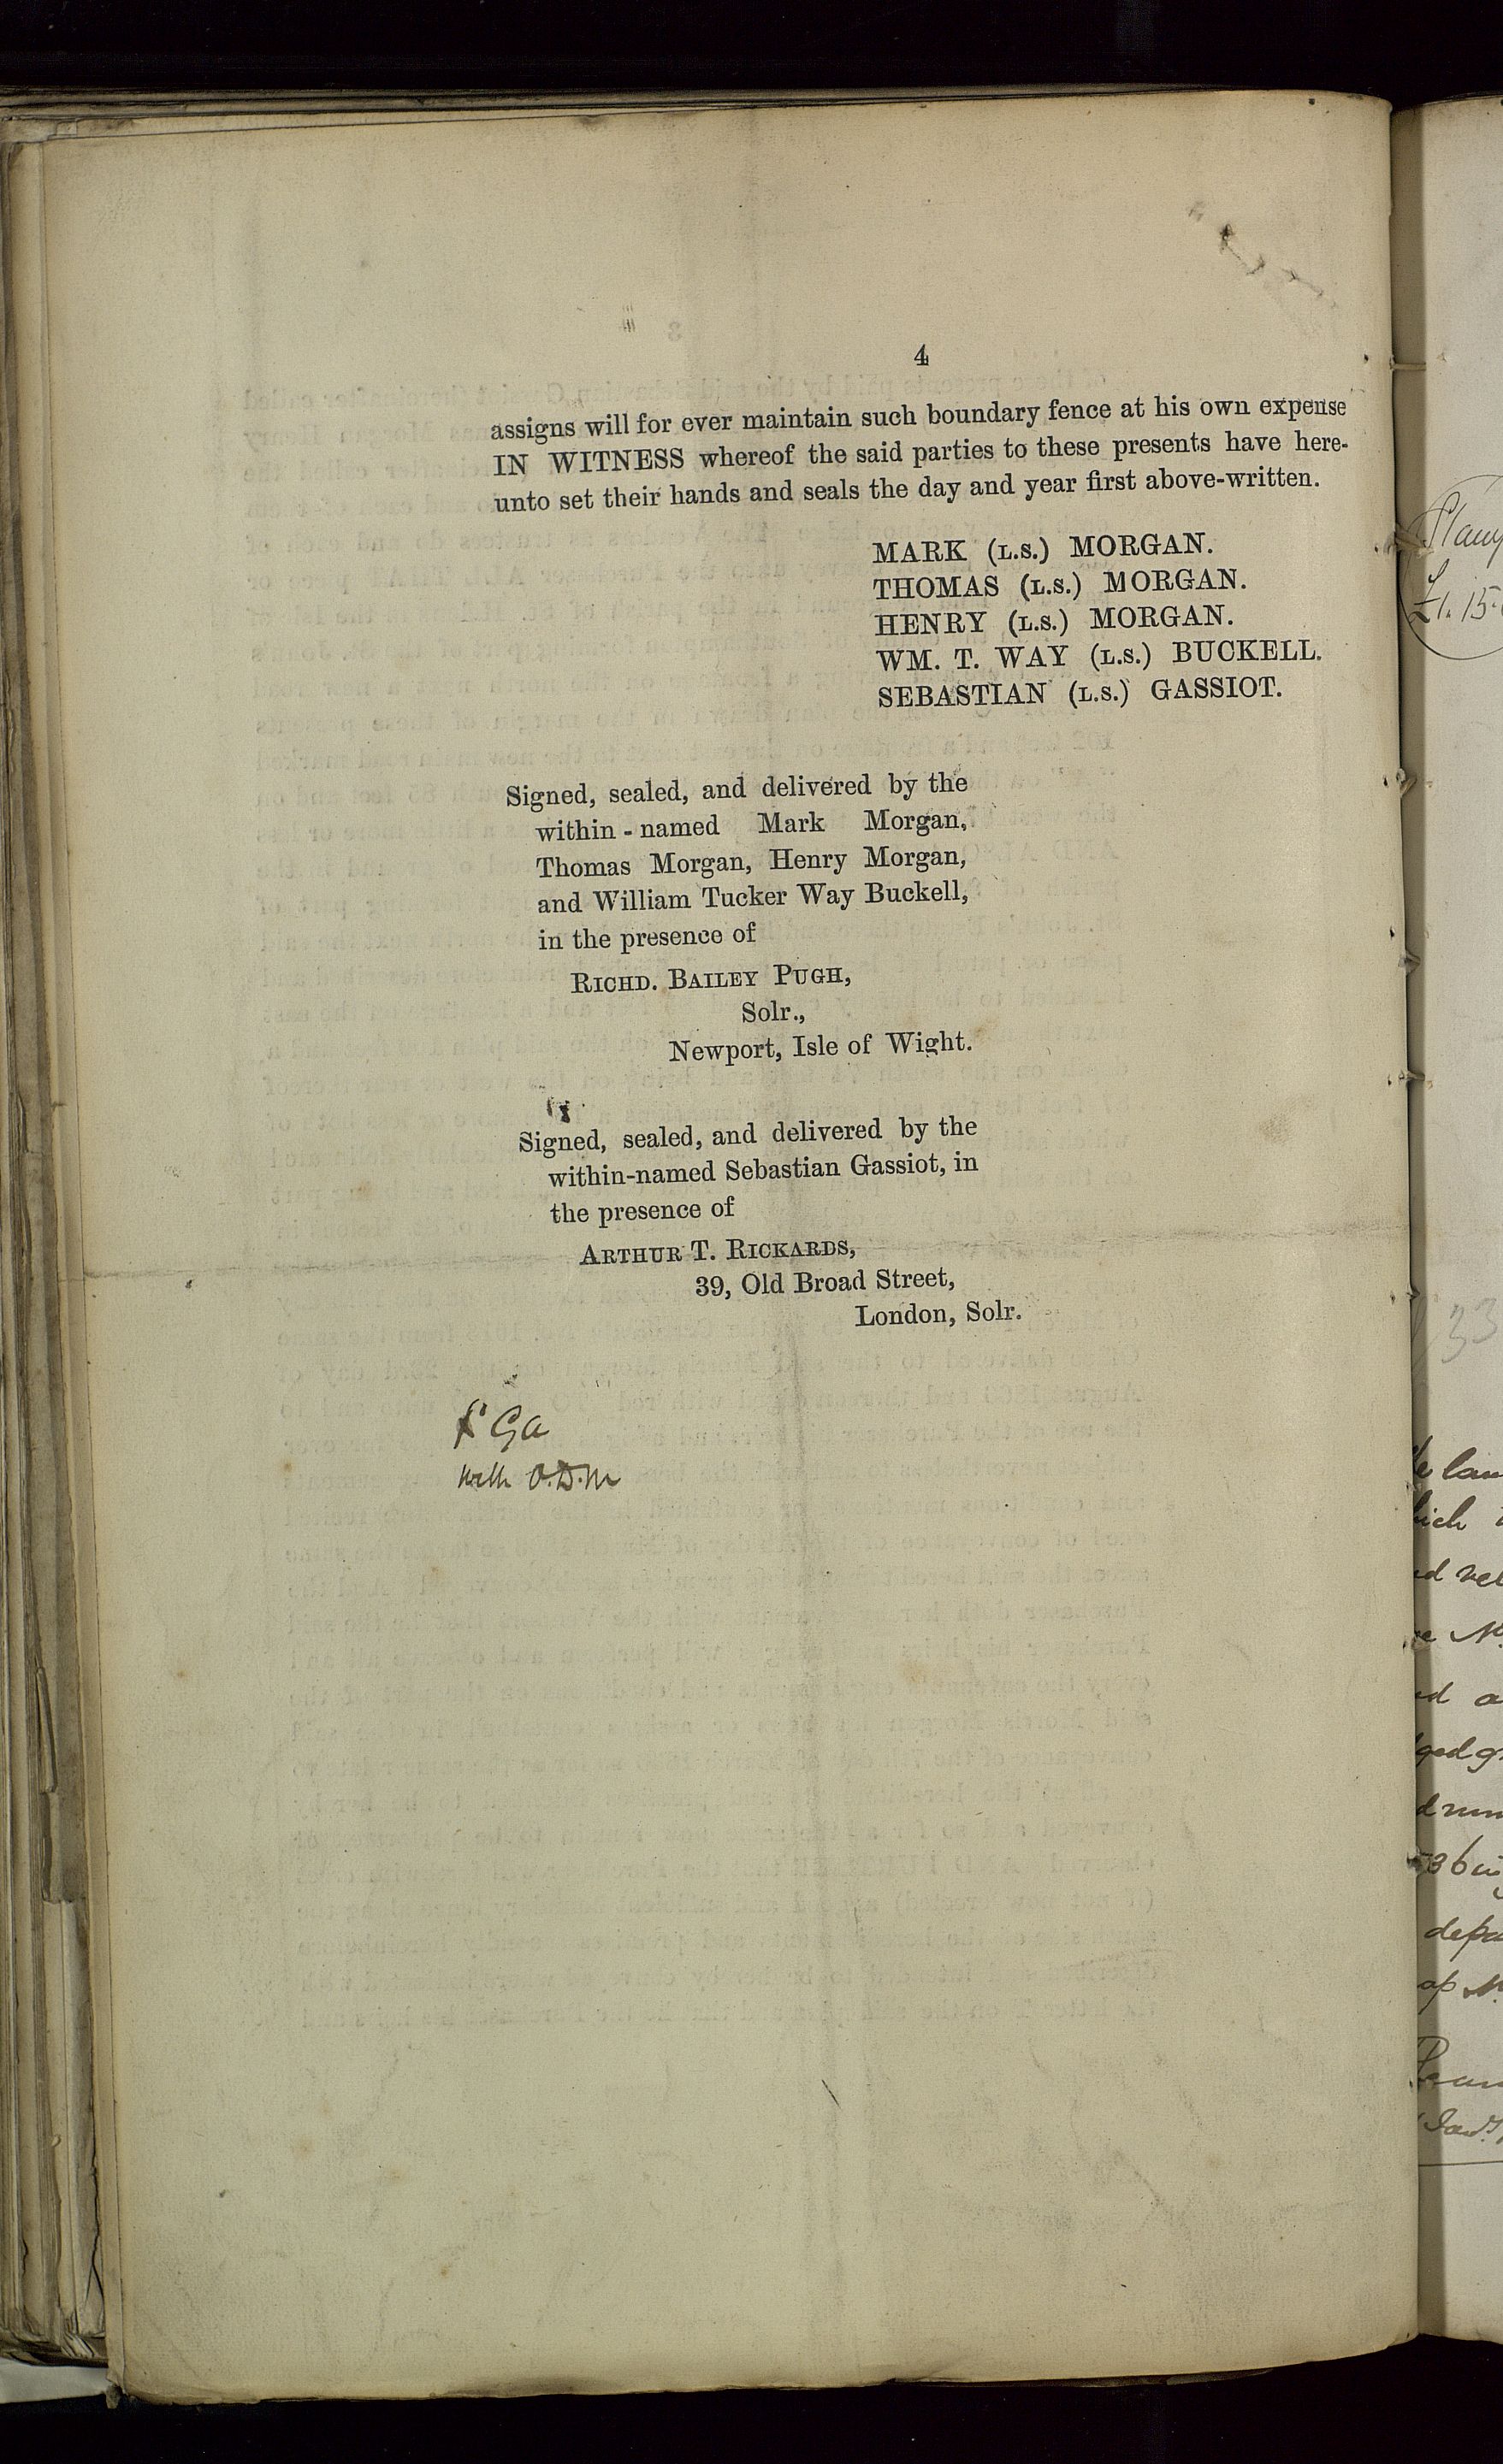 4
assigns will for ever maintain such boundary fence at his own expense
IN WITNESS whereof the said parties to these presents have here-
unto set their hands and seals the day and year first above-written.
MARK (L.S.) MORGAN.
THOMAS (L.S.) MORGAN.
HENRY (L.S.) MORGAN.
WM. T. WAY (L.S.) BUCKELL.
SEBASTIAN (L.S.) GASSIOT.
Signed, sealed, and delivered by the
within-named Mark Morgan,
Thomas Morgan, Henry Morgan,
and William Tucker Way Buckell,
in the presence of
RICHD. BAILEY PUGH,
Solr.,
Newport, Isle of Wight.
Signed, sealed, and delivered by the
within-named Sebastian Gassiot, in
the presence of
ARTHUR T. RICKARDS,
39, Old Broad Street,
London, Solr.
Ga
with O.D.M
£1.15.
33
lan
ich
depa